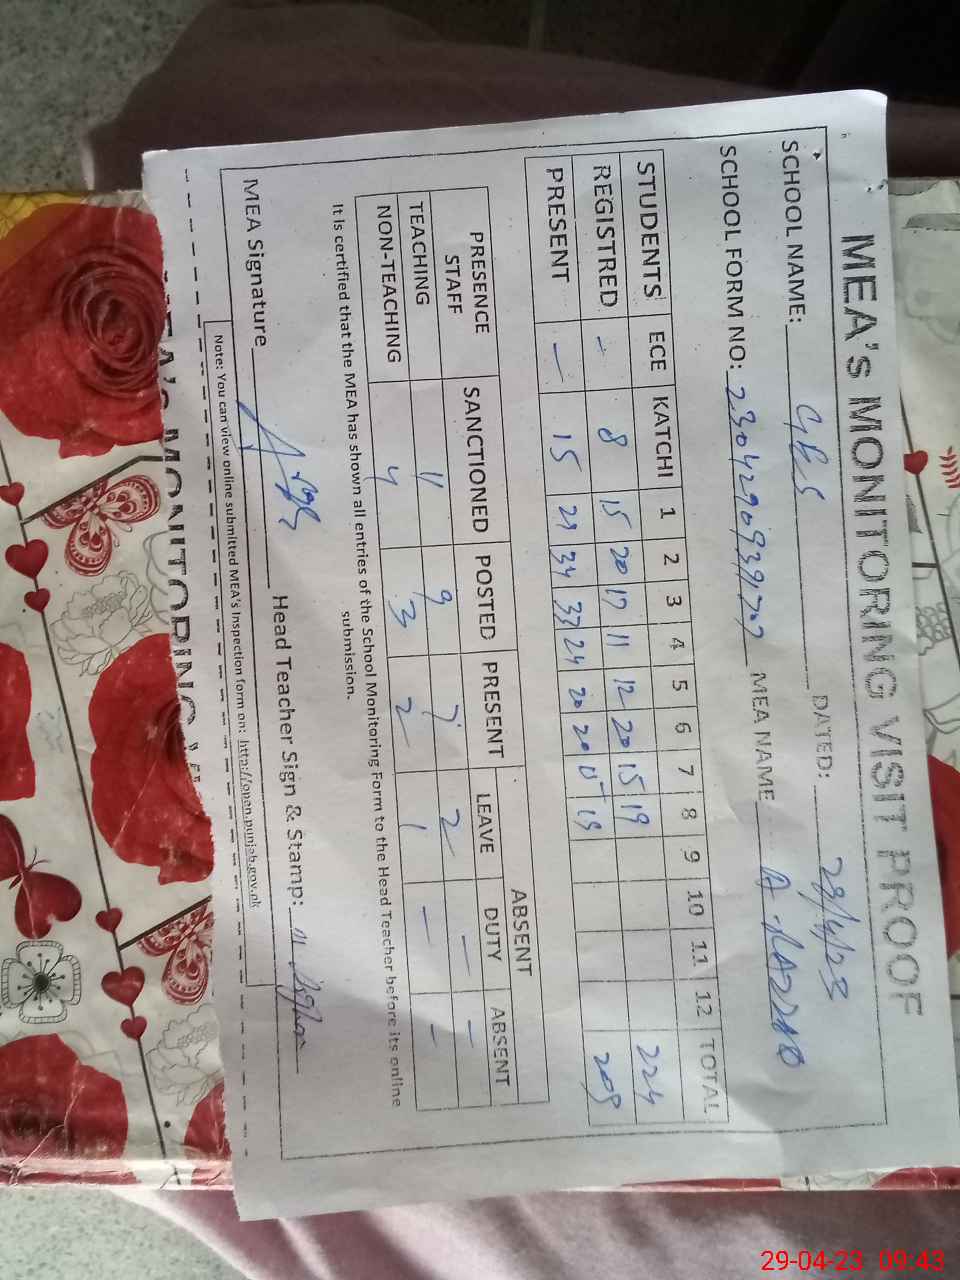 MEA's MONITORING VISIT PROOF
SCHOOL NAME: GES DATED: 29/4/23
SCHOOL FORM NO: MEA NAME A.RAZZAQ
STUDENTS ECE KATCHI 1 2 3 4 5 6 7 8 9 10 11 12 TOTAL
REGISTRED - 8 15 20 17 11 12 20 15 19 224
PRESENT - 15 21 34 33 24 20 20 19 209
PRESENCE STAFF SANCTIONED POSTED PRESENT ABSENT
LEAVE DUTY ABSENT
TEACHING 11 9 7 2 - -
NON-TEACHING 4 3 2 1 - -
It is certified that the MEA has shown all entries of the School Monitoring Form to the Head Teacher before its online
submission.
MEA Signature Head Teacher Sign & Stamp:
Note: You can view online submitted MEA's Inspection form on: http://open.punjab.gov.pk
MEA's MONITORING
29-04-23 09:43